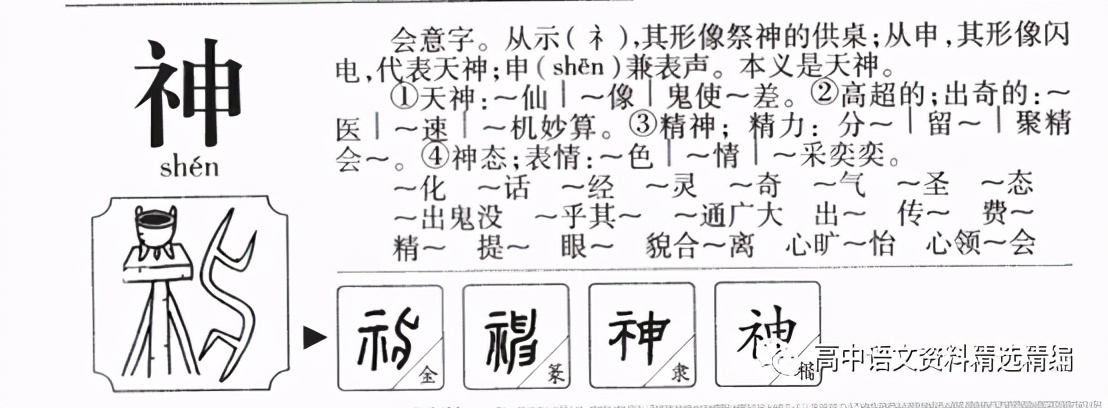 神
shén
会意字。从示(礻),其形像祭神的供桌;从申,其形像闪
电,代表天神;申(shēn)兼表声。本义是天神。
①天神:～仙｜～像｜鬼使～差。②高超的;出奇的:～
医｜～速｜～机妙算。③精神; 精力: 分～｜留～｜聚精
会～。④神态;表情:～色｜～情｜～采奕奕。
～化 ～话 ～经 ～灵 ～奇 ～气 ～圣 ～态
～出鬼没 ～乎其～ ～通广大 出～ 传～ 费～
精～ 提～ 眼～ 貌合～离 心旷～怡 心领～会
神 金
神 篆
神 隶
神 楷
高中语文资料精选精编